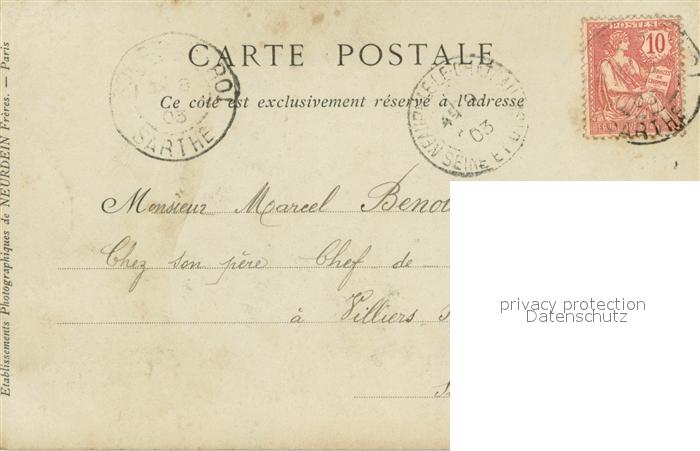 CARTE POSTALE
Ce côté est exclusivement réservé à l'adresse
Etablissements Photographiques de NEURDEIN Frères. — Paris
SARTHE
03
SEINE ET
03
10
SARTHE
Monsieur Marcel
Chez son père Chef de
à Villiers
privacy protection
Datenschutz